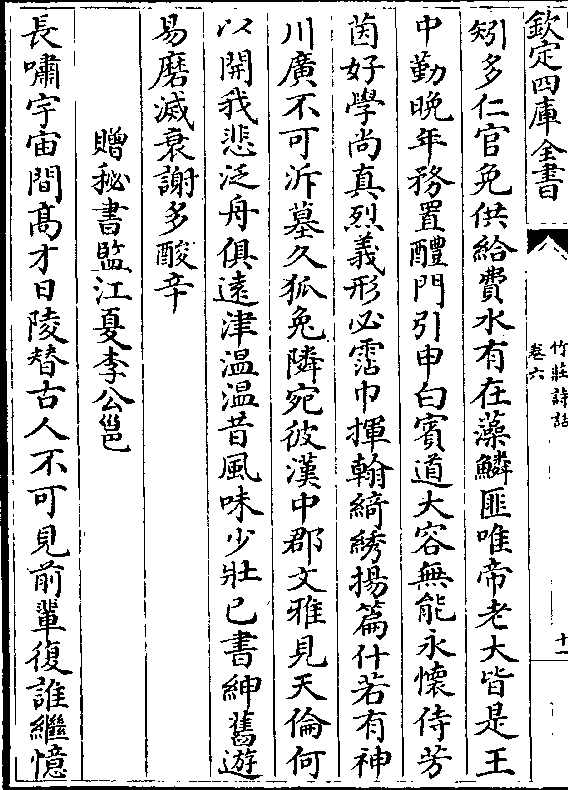 欽定四庫全書
竹莊詩話
卷六
十一
矧多仁官免供給費水有在藻鱗匪唯帝老大皆是王
中勤晚年務置醴門引申白賓道大容無能永懷侍芳
茵好學尚真烈義形必霑巾揮翰綺綉揚篇什若有神
川廣不可泝墓久狐兔隣宛彼漢中郡文雅見天倫何
以開我悲泛舟俱遠津温温昔風味少壯已書紳舊遊
易磨滅衰謝多酸辛
贈秘書監江夏李公邕
長嘯宇宙間髙才日陵替古人不可見前輩復誰繼憶